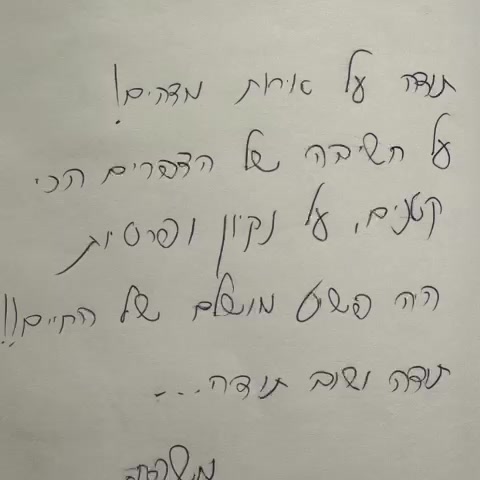 תודה על אירוח מדהים!
על חשיבה של הדברים הכי
קטנים, על נקיון ופרטיות
היה פשוט מושלם של החיים!!
תודה ושוב תודה...